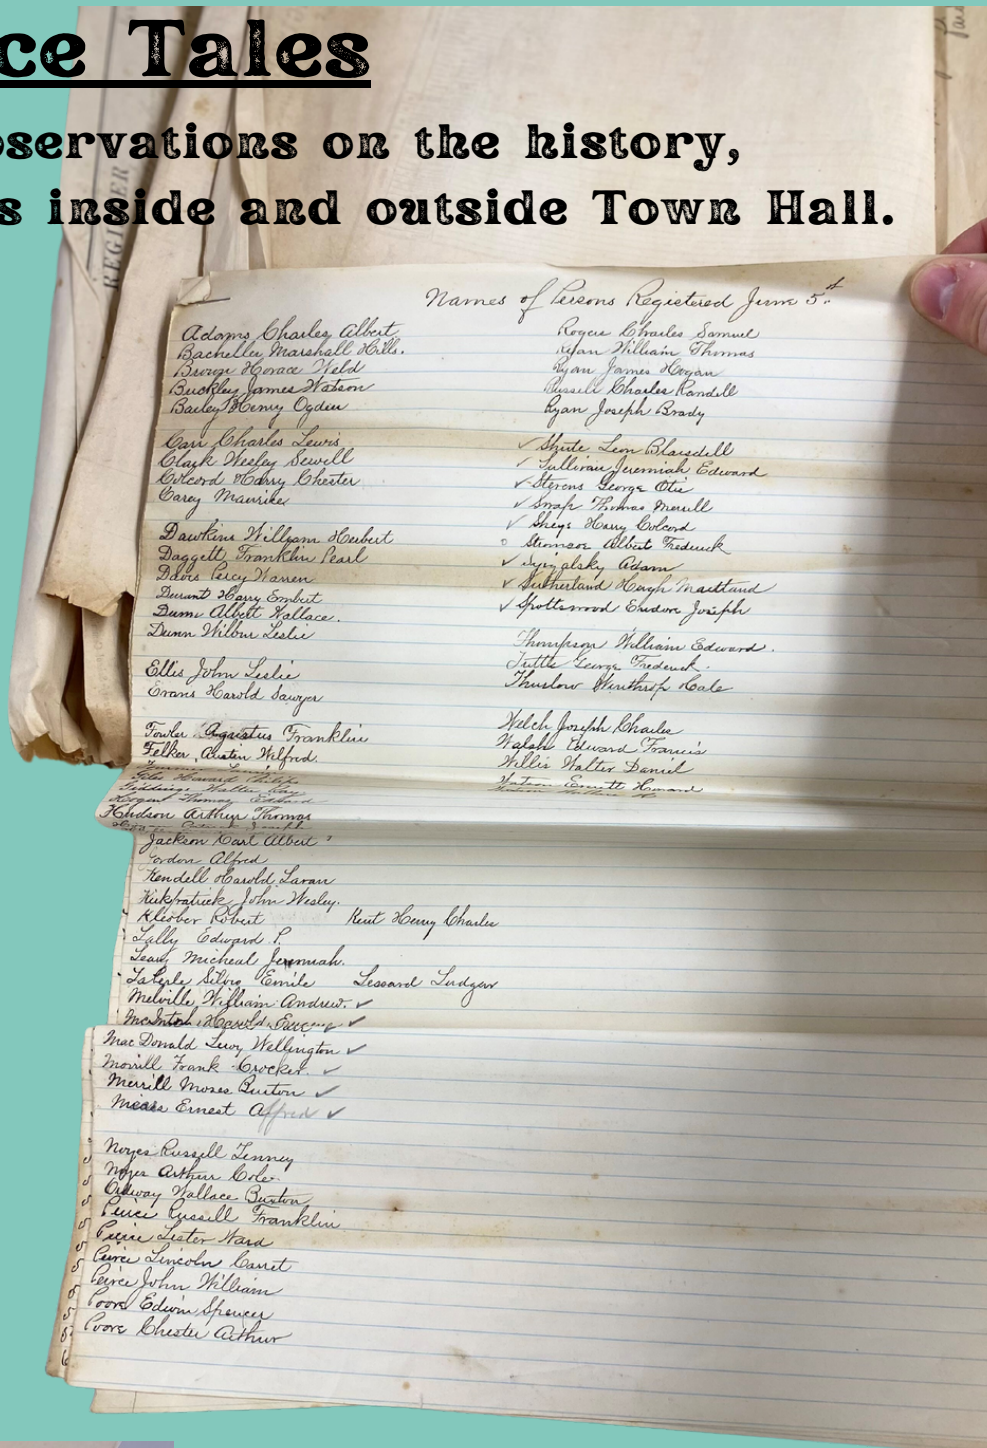 ce Tales
bservations on the history,
s inside and outside Town Hall.
REGISTER
Names of Persons Registered June 5th
Adams Charles Albert
Bacheller Marshall Hills.
Horace Weld
Buckley James Watson
Bailey Henry Ogden
Carr Charles Lewis
Clark Wesley Sewell
Colcord Harry Chester
Carey Maurice
Dawkins William Herbert
Daggett Franklin Pearl
Davis Percy Warren
Durant Harry Embert
Dunn Albert Wallace.
Dunn Wilbur Leslie
Ellis John Leslie
Evans Harold Sawyer
Fowler Agustus Franklin
Felker Austin Wilfred.
Giles Howard Philip
Giddings Walter Ray
Hogan Thomas Edward
Hudson Arthur Thomas
Jackson Karl Albert
Jordon Alfred
Kendell Harold Lavan
Kirkpatrick John Wesley.
Kleober Robert Kent Henry Charles
Lally Edward P.
Leary Micheal Jeremiah.
Silvio Emile Lessard Ludger
Melville William Andrew. ✓
McIntosh Harold Eugene ✓
MacDonald Levy Wellington ✓
Morrill Frank Crocker. ✓
Merrill Moses Burton ✓
Mears Ernest Alfred ✓
Noyes Russell Tenney
Noyes Arthur Cole.
Ordway Wallace Burton
Peirce Russell Franklin
Peirce Lester Ward
Peirce Lincoln Carret
Peirce John William
Poore Edwin Spencer
Poore Chester Arthur
Rogers Charles Samuel
Ryan William Thomas
Ryan James Hogan
Russell Charles Randell
Ryan Joseph Brady
✓ Shute Leon Blaisdell
✓ Sullivan Jeremiah Edward
✓ Stevens George Otis
✓ Snap Thomas Merrill
✓ Harry Colcord
o Albert Frederick
✓ Adam
✓ Sutherland Hugh Maitland
✓ Spottswood Joseph
Thompson William Edward.
Tuttle George Frederick.
Thurlow Winthrop Hale
Welch Joseph Charles
Walsh Edward Francis
Willis Walter Daniel
Watson Everett Howard